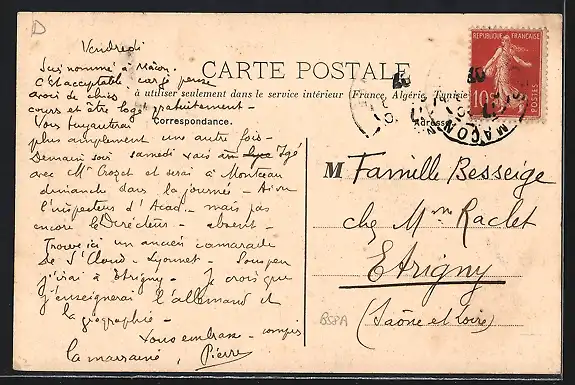 Vendredi
Suis nommé à Macon.
C'est acceptable car je pense
avoir de choix
cours et être logé gratuitement -
CARTE POSTALE
à utiliser seulement dans le service intérieur (France, Algérie, Tunisie
Correspondance.
Adresse
RÉPUBLIQUE FRANÇAISE
10
POSTES
MACON
Vous
plus amplement une autre fois -
Demain soir samedi vais Igé
avec Mr Crozet et serai à Montceau
dimanche dans la journée -
l'inspecteur d'Acad. - mais pas
encore le Directeur - absent -
Trouvé ici un ancien camarade
De St Cloud - Lyonnet -
j'irai à Etrigny - Je crois que
j'enseignerai l'allemand et
la géographie -
Vous embrasse - compris
la marraine, Pierre
M Famille Besseige
chez Mme Raclet
Etrigny
(Saône et Loire)
BSPA
D